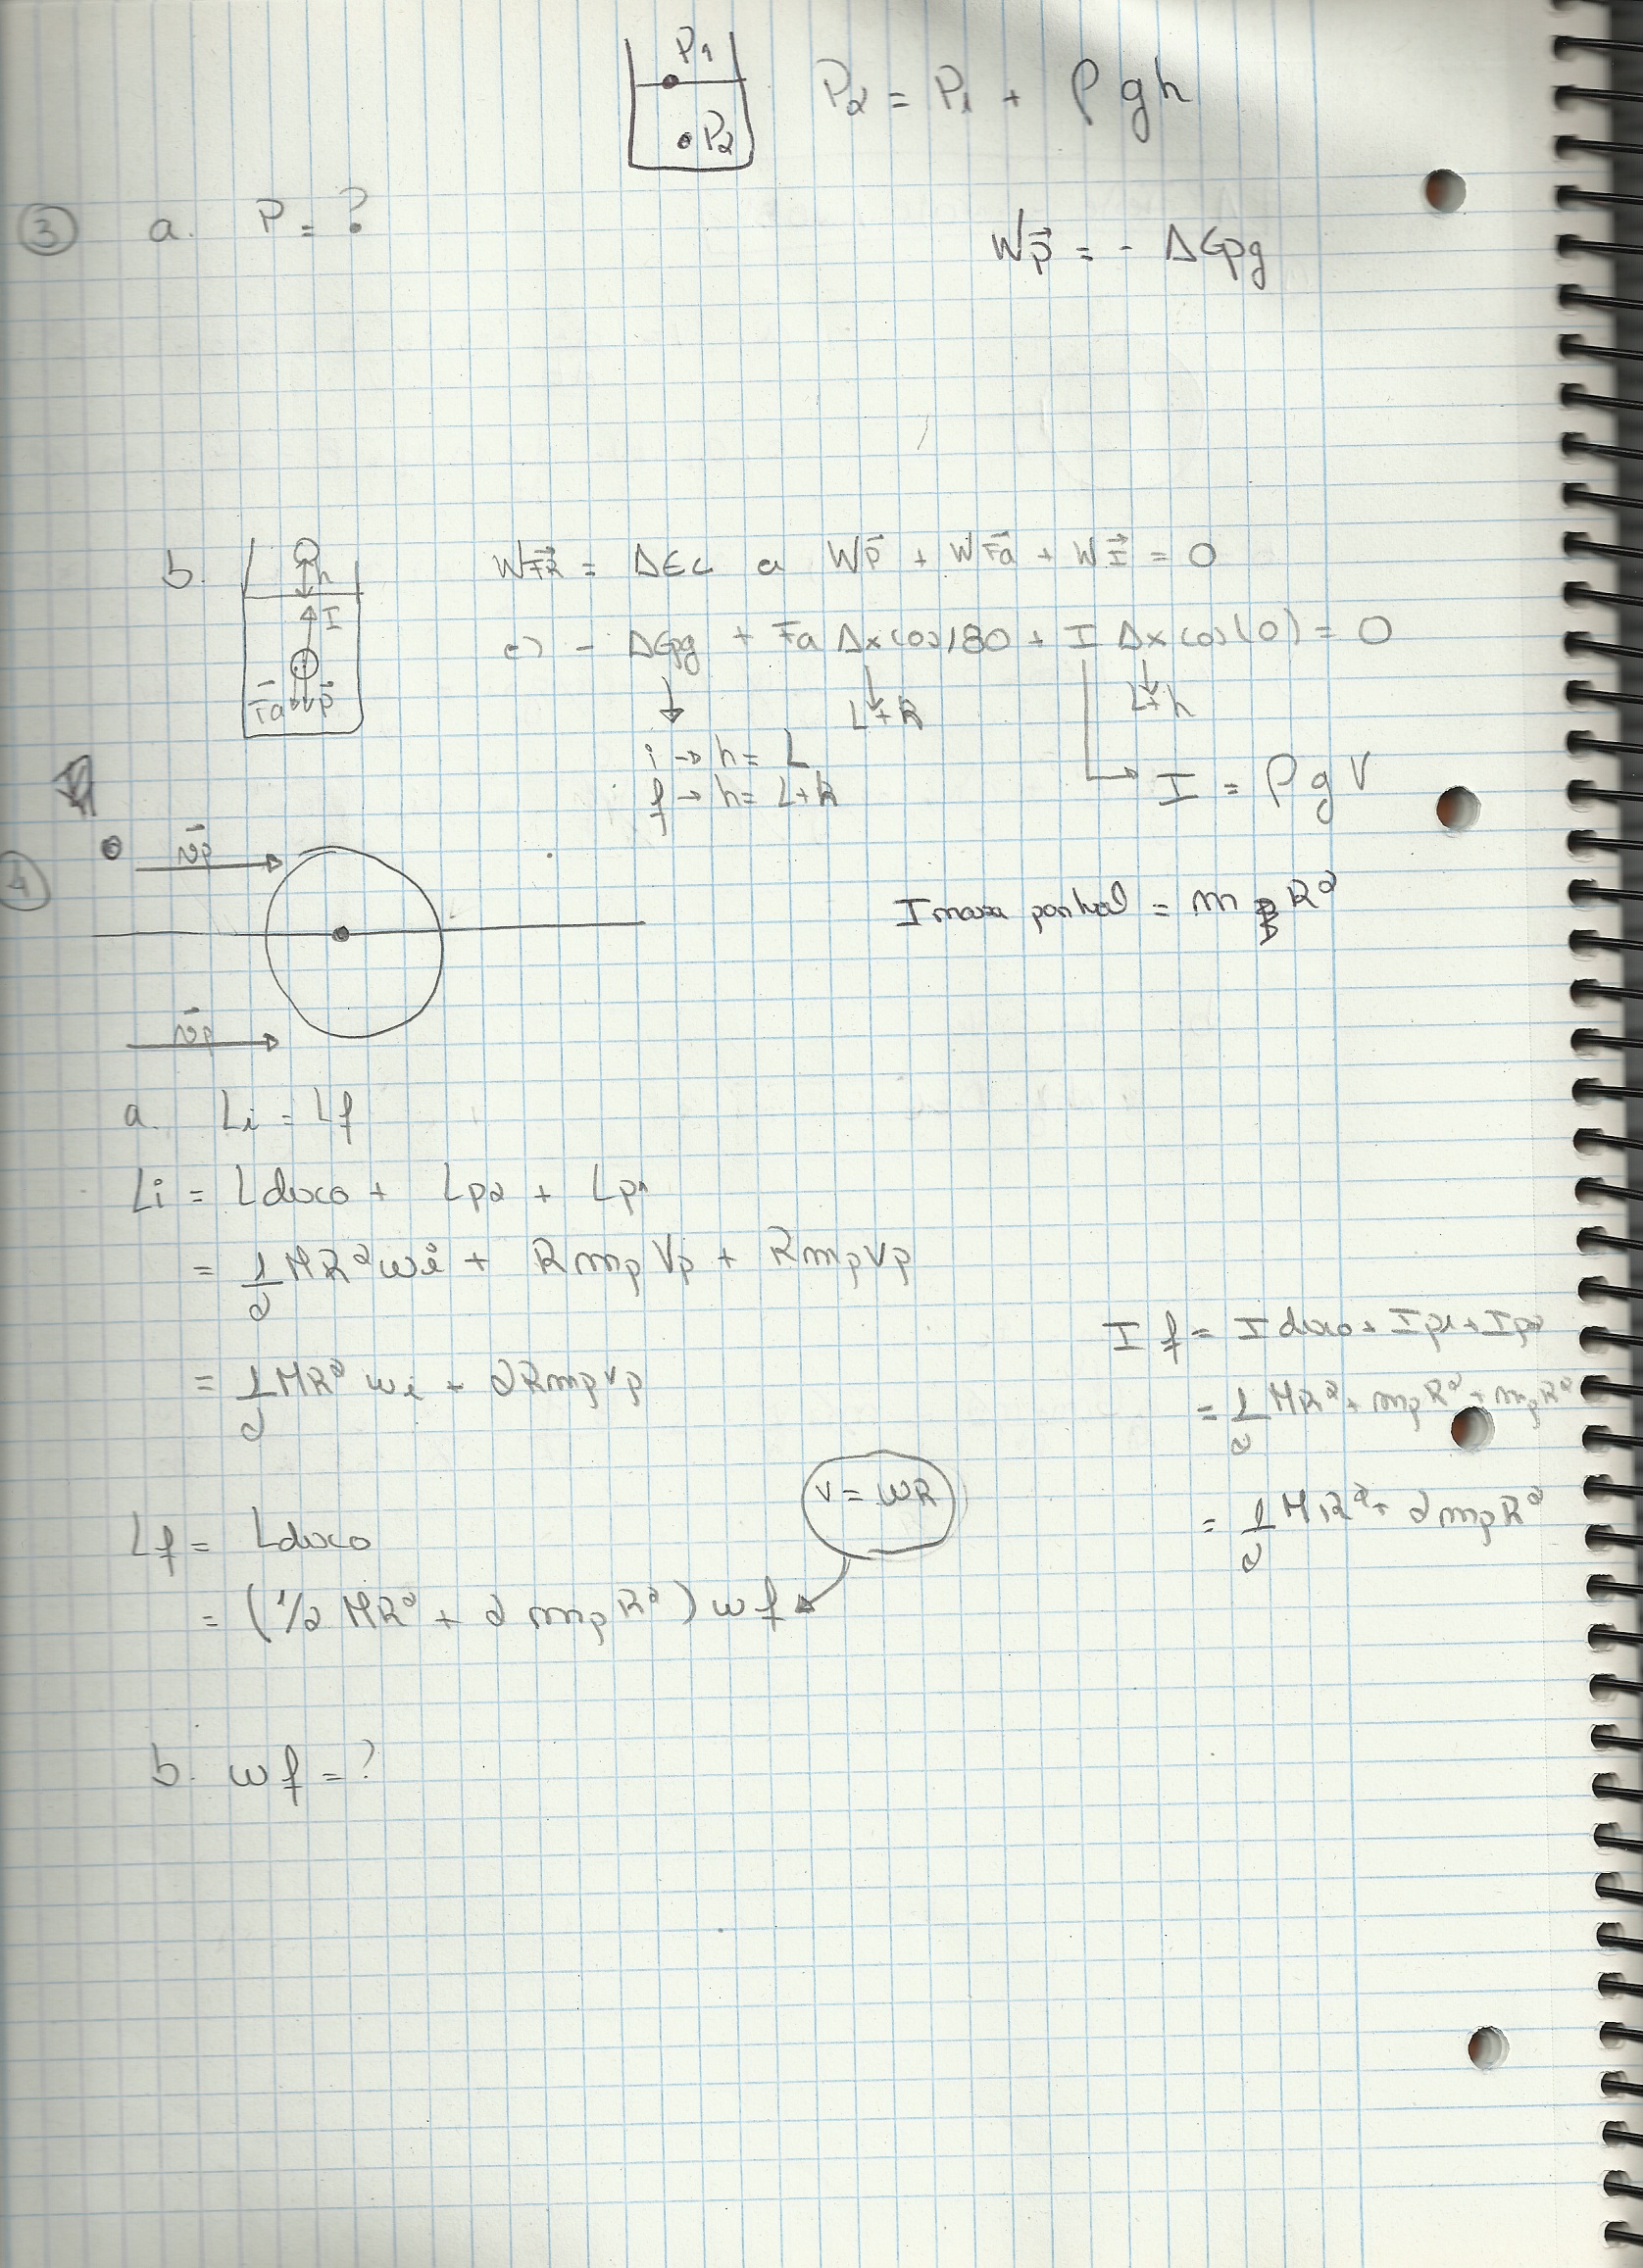 P1
P2
P2 = P1 + ρgh
3 a. P = ?
Wp⃗ = - ΔEpg
b.
h
I
Fa⃗ p⃗
WF⃗R = ΔEc a Wp⃗ + WF⃗a + WI⃗ = 0
c) - ΔEpg + Fa Δx cos180 + I Δx cos(0) = 0
L+h
L+h
i → h = L
f → h = L+h
I = ρgV
4
v⃗p
I massa pontual = m R²
v⃗p
a. Li = Lf
Li = Ldisco + Lp2 + Lp1
= 1/2 MR² ωi + R mp vp + R mp vp
= 1/2 MR² ωi + 2 R mp vp
I f = I disco + Ip1 + Ip2
= 1/2 MR² + mpR² + mpR²
= 1/2 MR² + 2 mpR²
v = ωR
Lf = Ldisco
= (1/2 MR² + 2 mp R²) ωf
b. ωf = ?